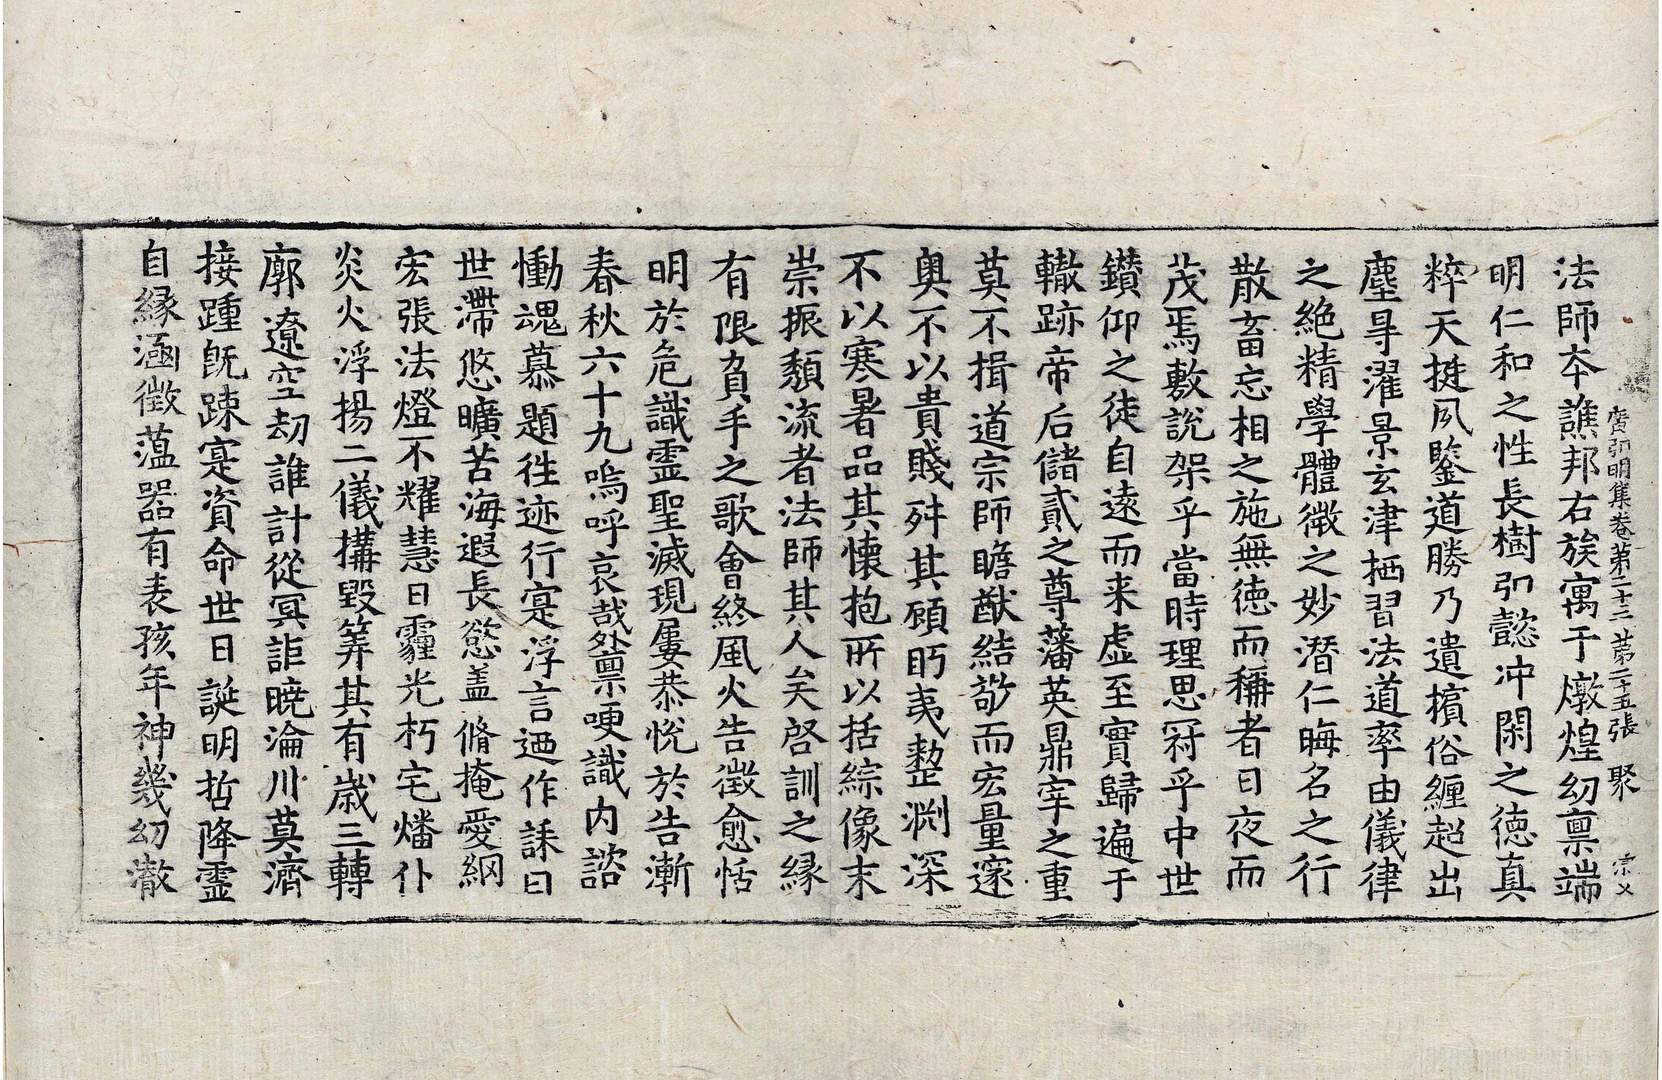 廣弘明集卷第二十三 第二十五張 聚
法師本譙邦右族寓于燉煌幼稟端
明仁和之性長樹弘懿冲閑之德真
粹天挺夙鑒道勝乃遺擯俗纏超出
塵㝵濯景玄津栖習法道率由儀律
之絶精學體微之妙潛仁晦名之行
散畜忘相之施無德而稱者日夜而
茂焉敷說架乎當時理思冠乎中世
鑽仰之徒自遠而来虛至實歸遍于
轍跡帝后儲貳之尊藩英鼎宰之重
莫不揖道宗師瞻猷結敬而宏量邃
奥不以貴賤舛其顧眄夷整淵深
不以寒暑品其懷抱所以括綜像末
崇振頽流者法師其人矣啓訓之縁
有限負手之歌會終風火告徵愈恬
明於危識靈聖滅現屢恭悅於告漸
春秋六十九嗚呼哀哉禀哽識内諮
慟魂慕題徃迹行寔浮言迺作誄曰
世滯悠曠苦海遐長慾盖脩掩愛網
宏張法燈不耀慧日霾光朽宅燔仆
炎火浮揚二儀搆毀筭其有歲三轉
廓遼空劫誰計從冥詎曉淪川莫濟
接踵旣踈寔資命世日誕明哲降靈
自縁涵徵蕰器有表孩年神幾幼澈